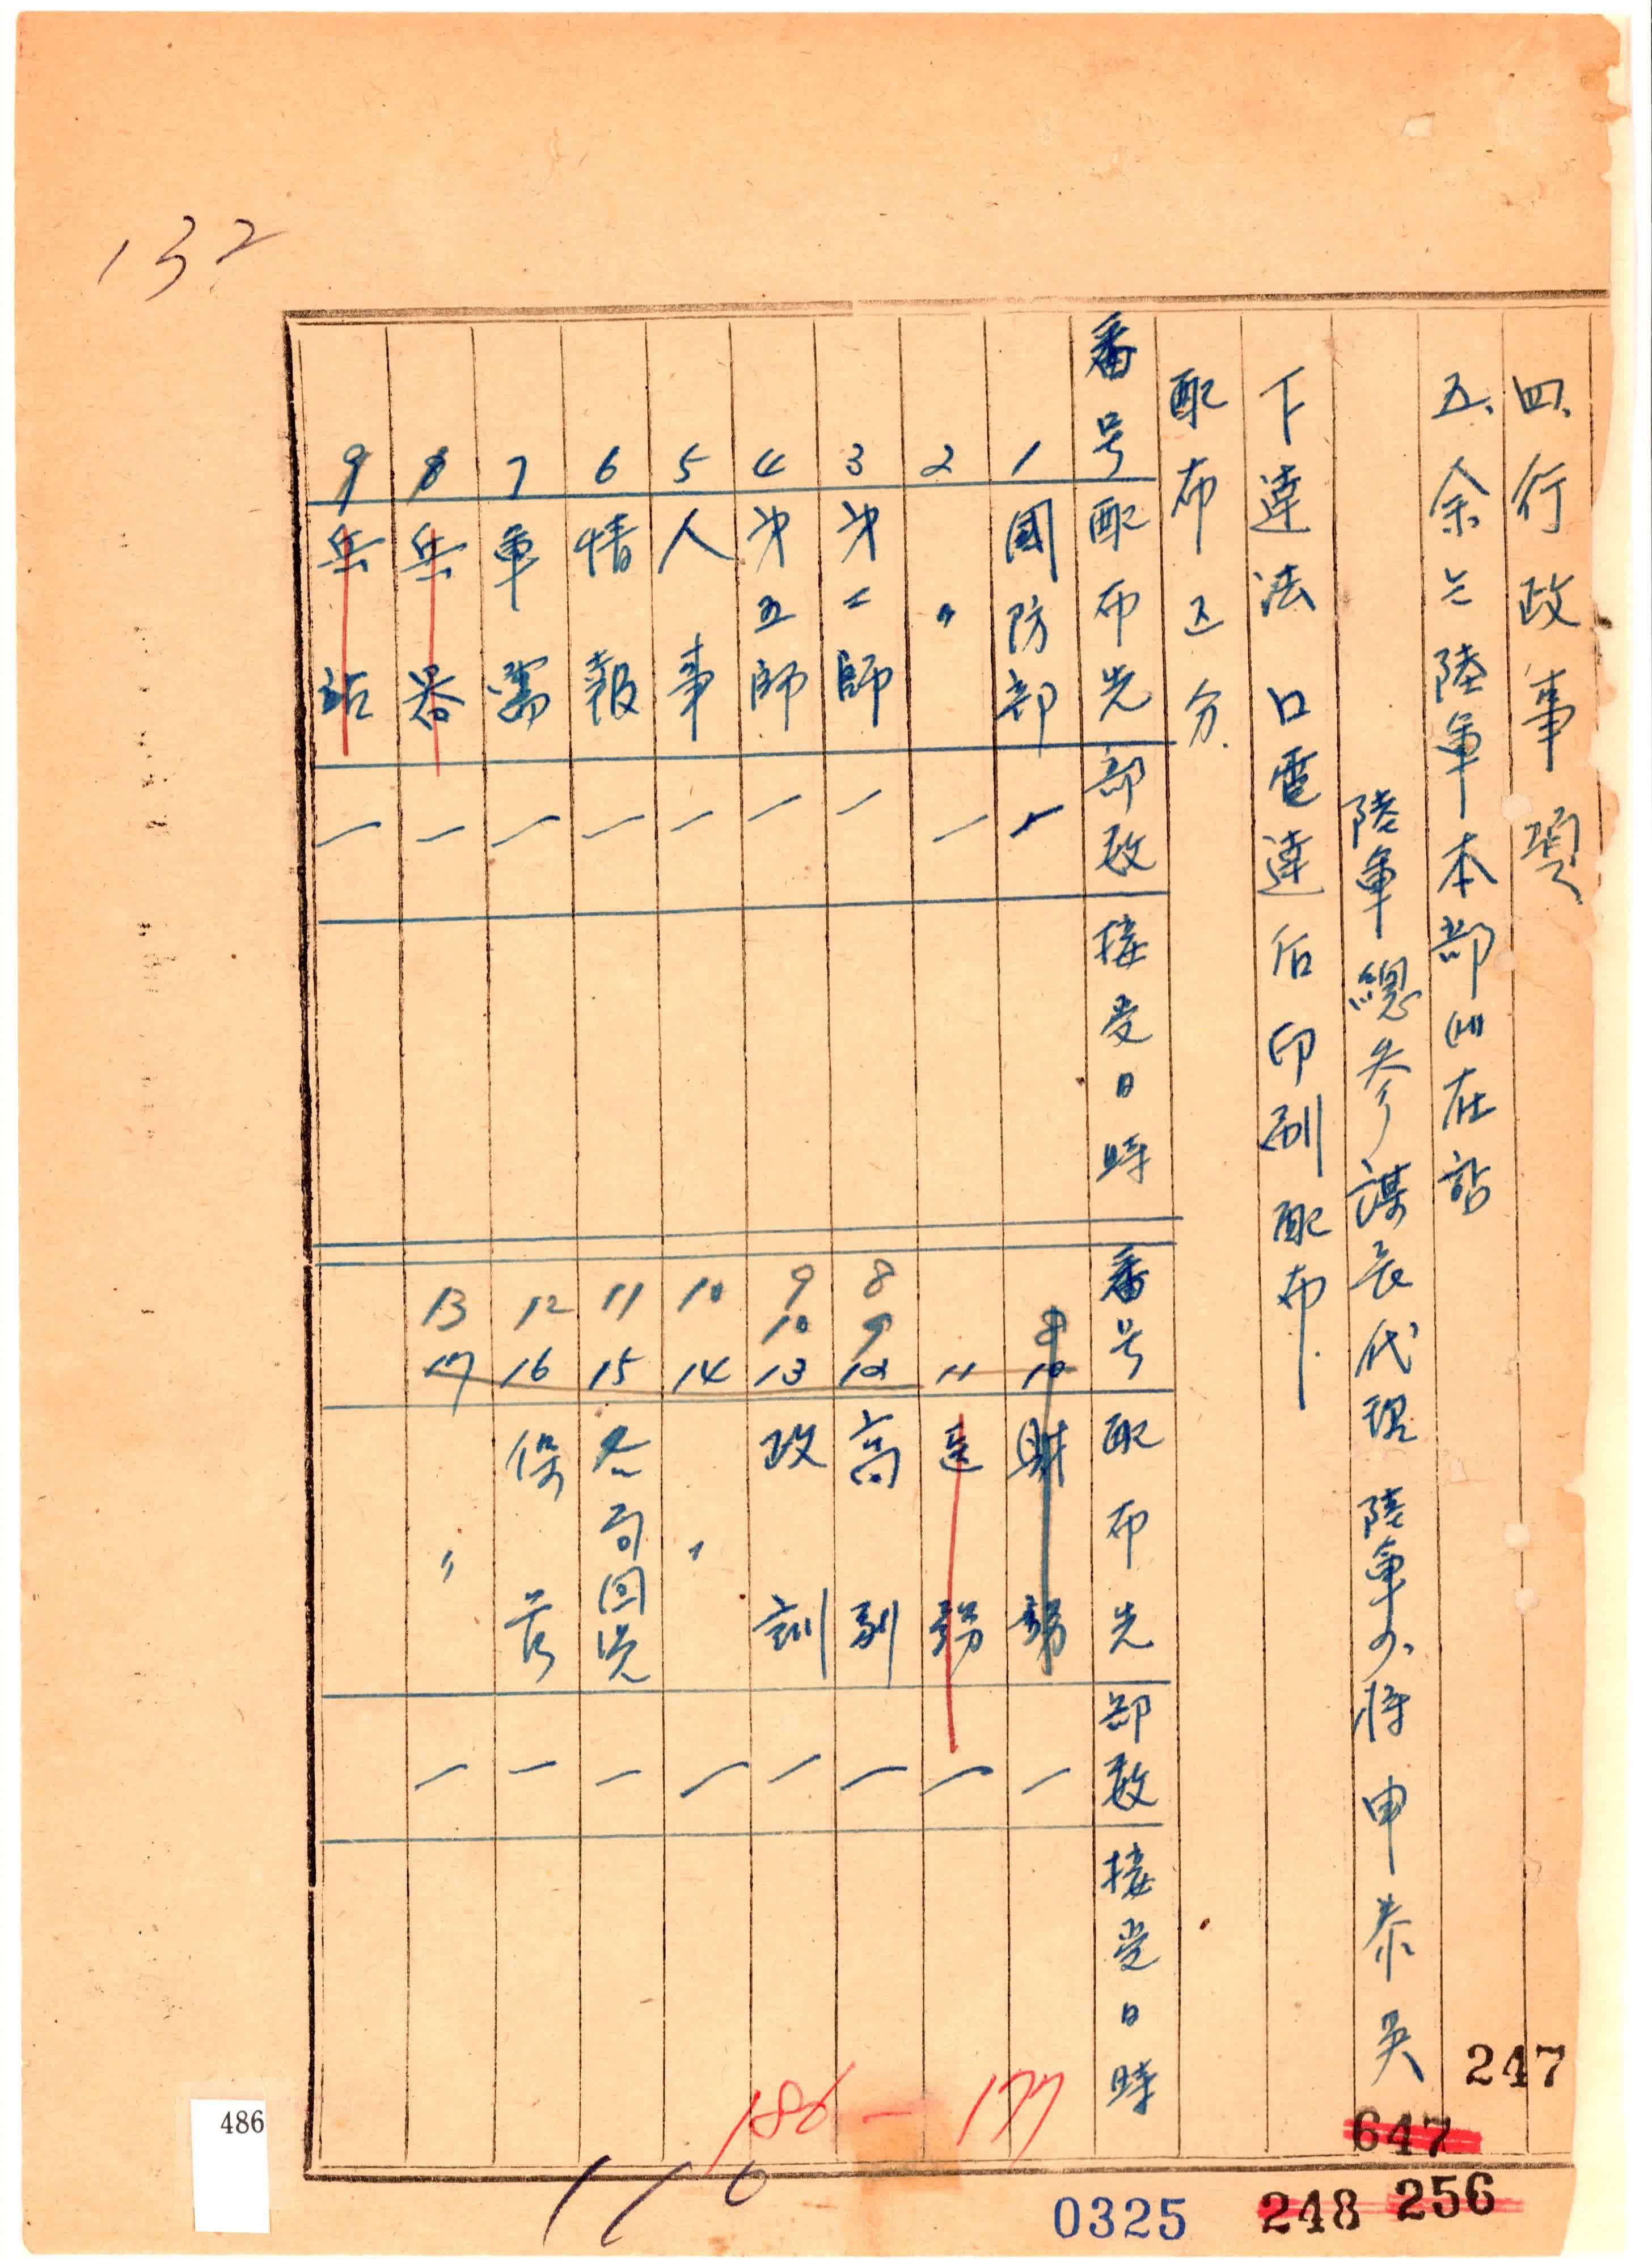 132
四、行政事項
五、余는陸軍本部에在함
陸軍總參謀長代理 陸軍少將 申泰英
下達法 口電達后印刷配布
配布区分
番号 配布先 部数 接受日時
1 國防部 一
2 〃 一
3 第二師 一
4 第五師 一
5 人事 一
6 情報 一
7 軍需 一
8 兵器 一
9 兵站 一
番号 配布先 部数 接受日時
8 10 財務 一
11 一
8 9 12 高副 一
9 10 13 政訓 一
10 14 〃 一
11 15 一
12 16 保管 一
13 17 〃 一
186 - 177
116
247
647
248 256
0325
486